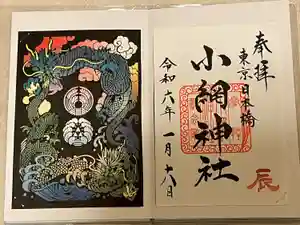 奉拝
東京日本橋
小網神社
令和六年一月十八日
辰